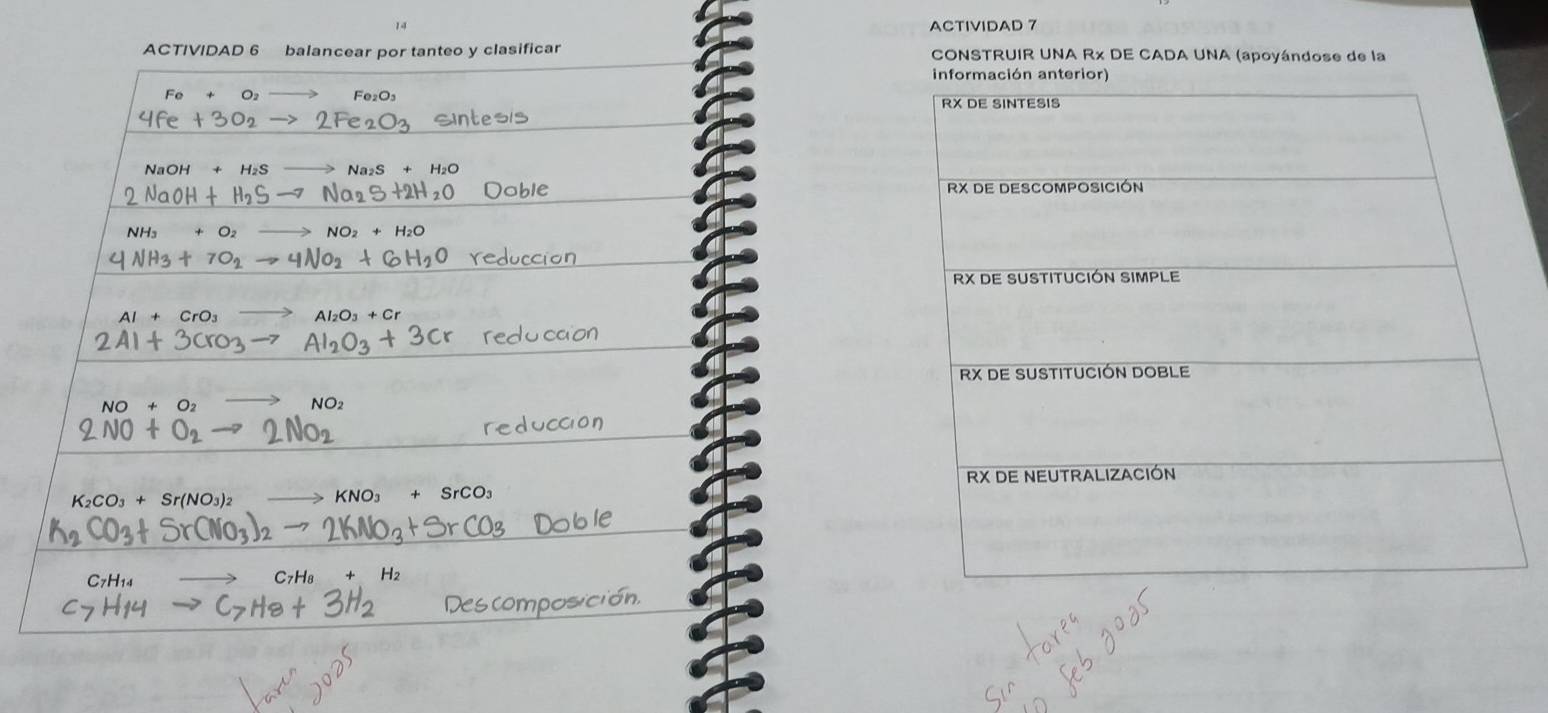 14
ACTIVIDAD 6 balancear por tanteo y clasificar
Fe + O₂ ⟶ Fe₂O₃
4Fe + 3O₂ → 2Fe₂O₃ sintesis
NaOH + H₂S ⟶ Na₂S + H₂O
2 NaOH + H₂S → Na₂S + 2H₂O Doble
NH₃ + O₂ ⟶ NO₂ + H₂O
4 NH3 + 7O₂ → 4NO₂ + 6H₂O reduccion
Al + CrO₃ ⟶ Al₂O₃ + Cr
2Al + 3CrO₃ → Al₂O₃ + 3Cr reduccion
NO + O₂ ⟶ NO₂
2NO + O₂ → 2NO₂ reduccion
K₂CO₃ + Sr(NO₃)₂ ⟶ KNO₃ + SrCO₃
K₂CO₃ + Sr(NO₃)₂ → 2KNO₃ + SrCO₃ Doble
C₇H₁₄ ⟶ C₇H₈ + H₂
C₇H14 → C₇H8 + 3H₂ Descomposición.
tarea
2025
ACTIVIDAD 7
CONSTRUIR UNA Rx DE CADA UNA (apoyándose de la
información anterior)
RX DE SINTESIS
RX DE DESCOMPOSICIÓN
RX DE SUSTITUCIÓN SIMPLE
RX DE SUSTITUCIÓN DOBLE
RX DE NEUTRALIZACIÓN
Sin tarea
10 feb 2025